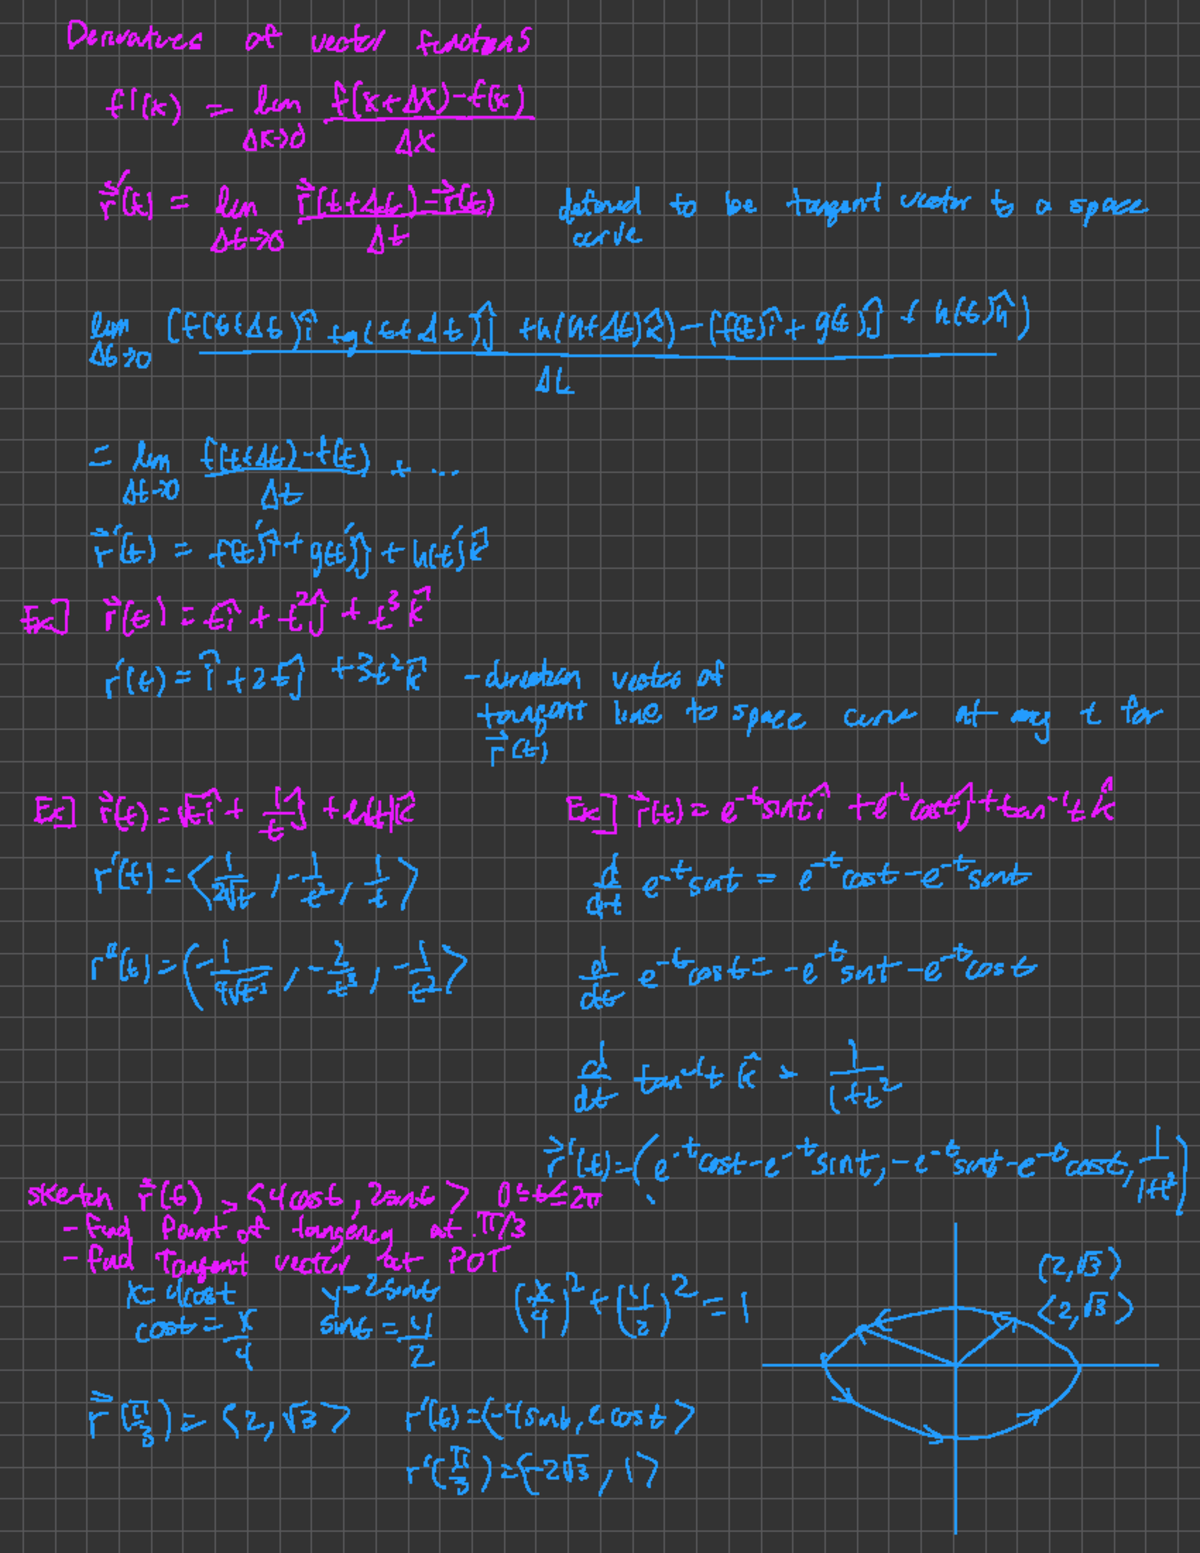 Derivatives of vector functions
f'(x) = lim Δx→0 f(x+Δx)-f(x) / Δx
r⃗'(t) = lim Δt→0 r⃗(t+Δt)-r⃗(t) / Δt defined to be tangent vector to a space curve
lim Δt→0 (f(t+Δt)î + g(t+Δt)ĵ + h(t+Δt)k̂) - (f(t)î + g(t)ĵ + h(t)k̂) / Δt
= lim Δt→0 f(t+Δt)-f(t) / Δt + ...
r⃗'(t) = f(t)'î + g(t)'ĵ + h(t)'k̂
Ex] r⃗(t) = tî + t²ĵ + t³k̂
r'(t) = î + 2tĵ + 3t²k̂ - direction vector of
tangent line to space curve at any t for
r⃗(t)
Ex] r⃗(t) = √t î + 1/t ĵ + ln(t)k̂
r'(t) = ⟨1/2√t, -1/t², 1/t⟩
r"(t) = ⟨-1/4√t³, -2/t³, -1/t²⟩
Ex] r⃗(t) = e⁻ᵗsint î + e⁻ᵗcost ĵ + tan⁻¹t k̂
d/dt e⁻ᵗsint = e⁻ᵗcost - e⁻ᵗsint
d/dt e⁻ᵗcost = -e⁻ᵗsint - e⁻ᵗcost
d/dt tan⁻¹t k̂ = 1/1+t²
r⃗'(t) = ⟨e⁻ᵗcost - e⁻ᵗsint, -e⁻ᵗsint - e⁻ᵗcost, 1/1+t²⟩
sketch r⃗(t) = ⟨4cost, 2sint⟩ 0≤t≤2π
- find Point of tangency at π/3
- find Tangent vector at POT
x=4cost y=2sint (x/4)² + (y/2)² = 1
cost = x/4 sint = y/2
r⃗(π/3) = ⟨2, √3⟩ r'(t) = ⟨-4sint, 2cost⟩
r'(π/3) = ⟨-2√3, 1⟩
(2, √3)
⟨2, √3⟩